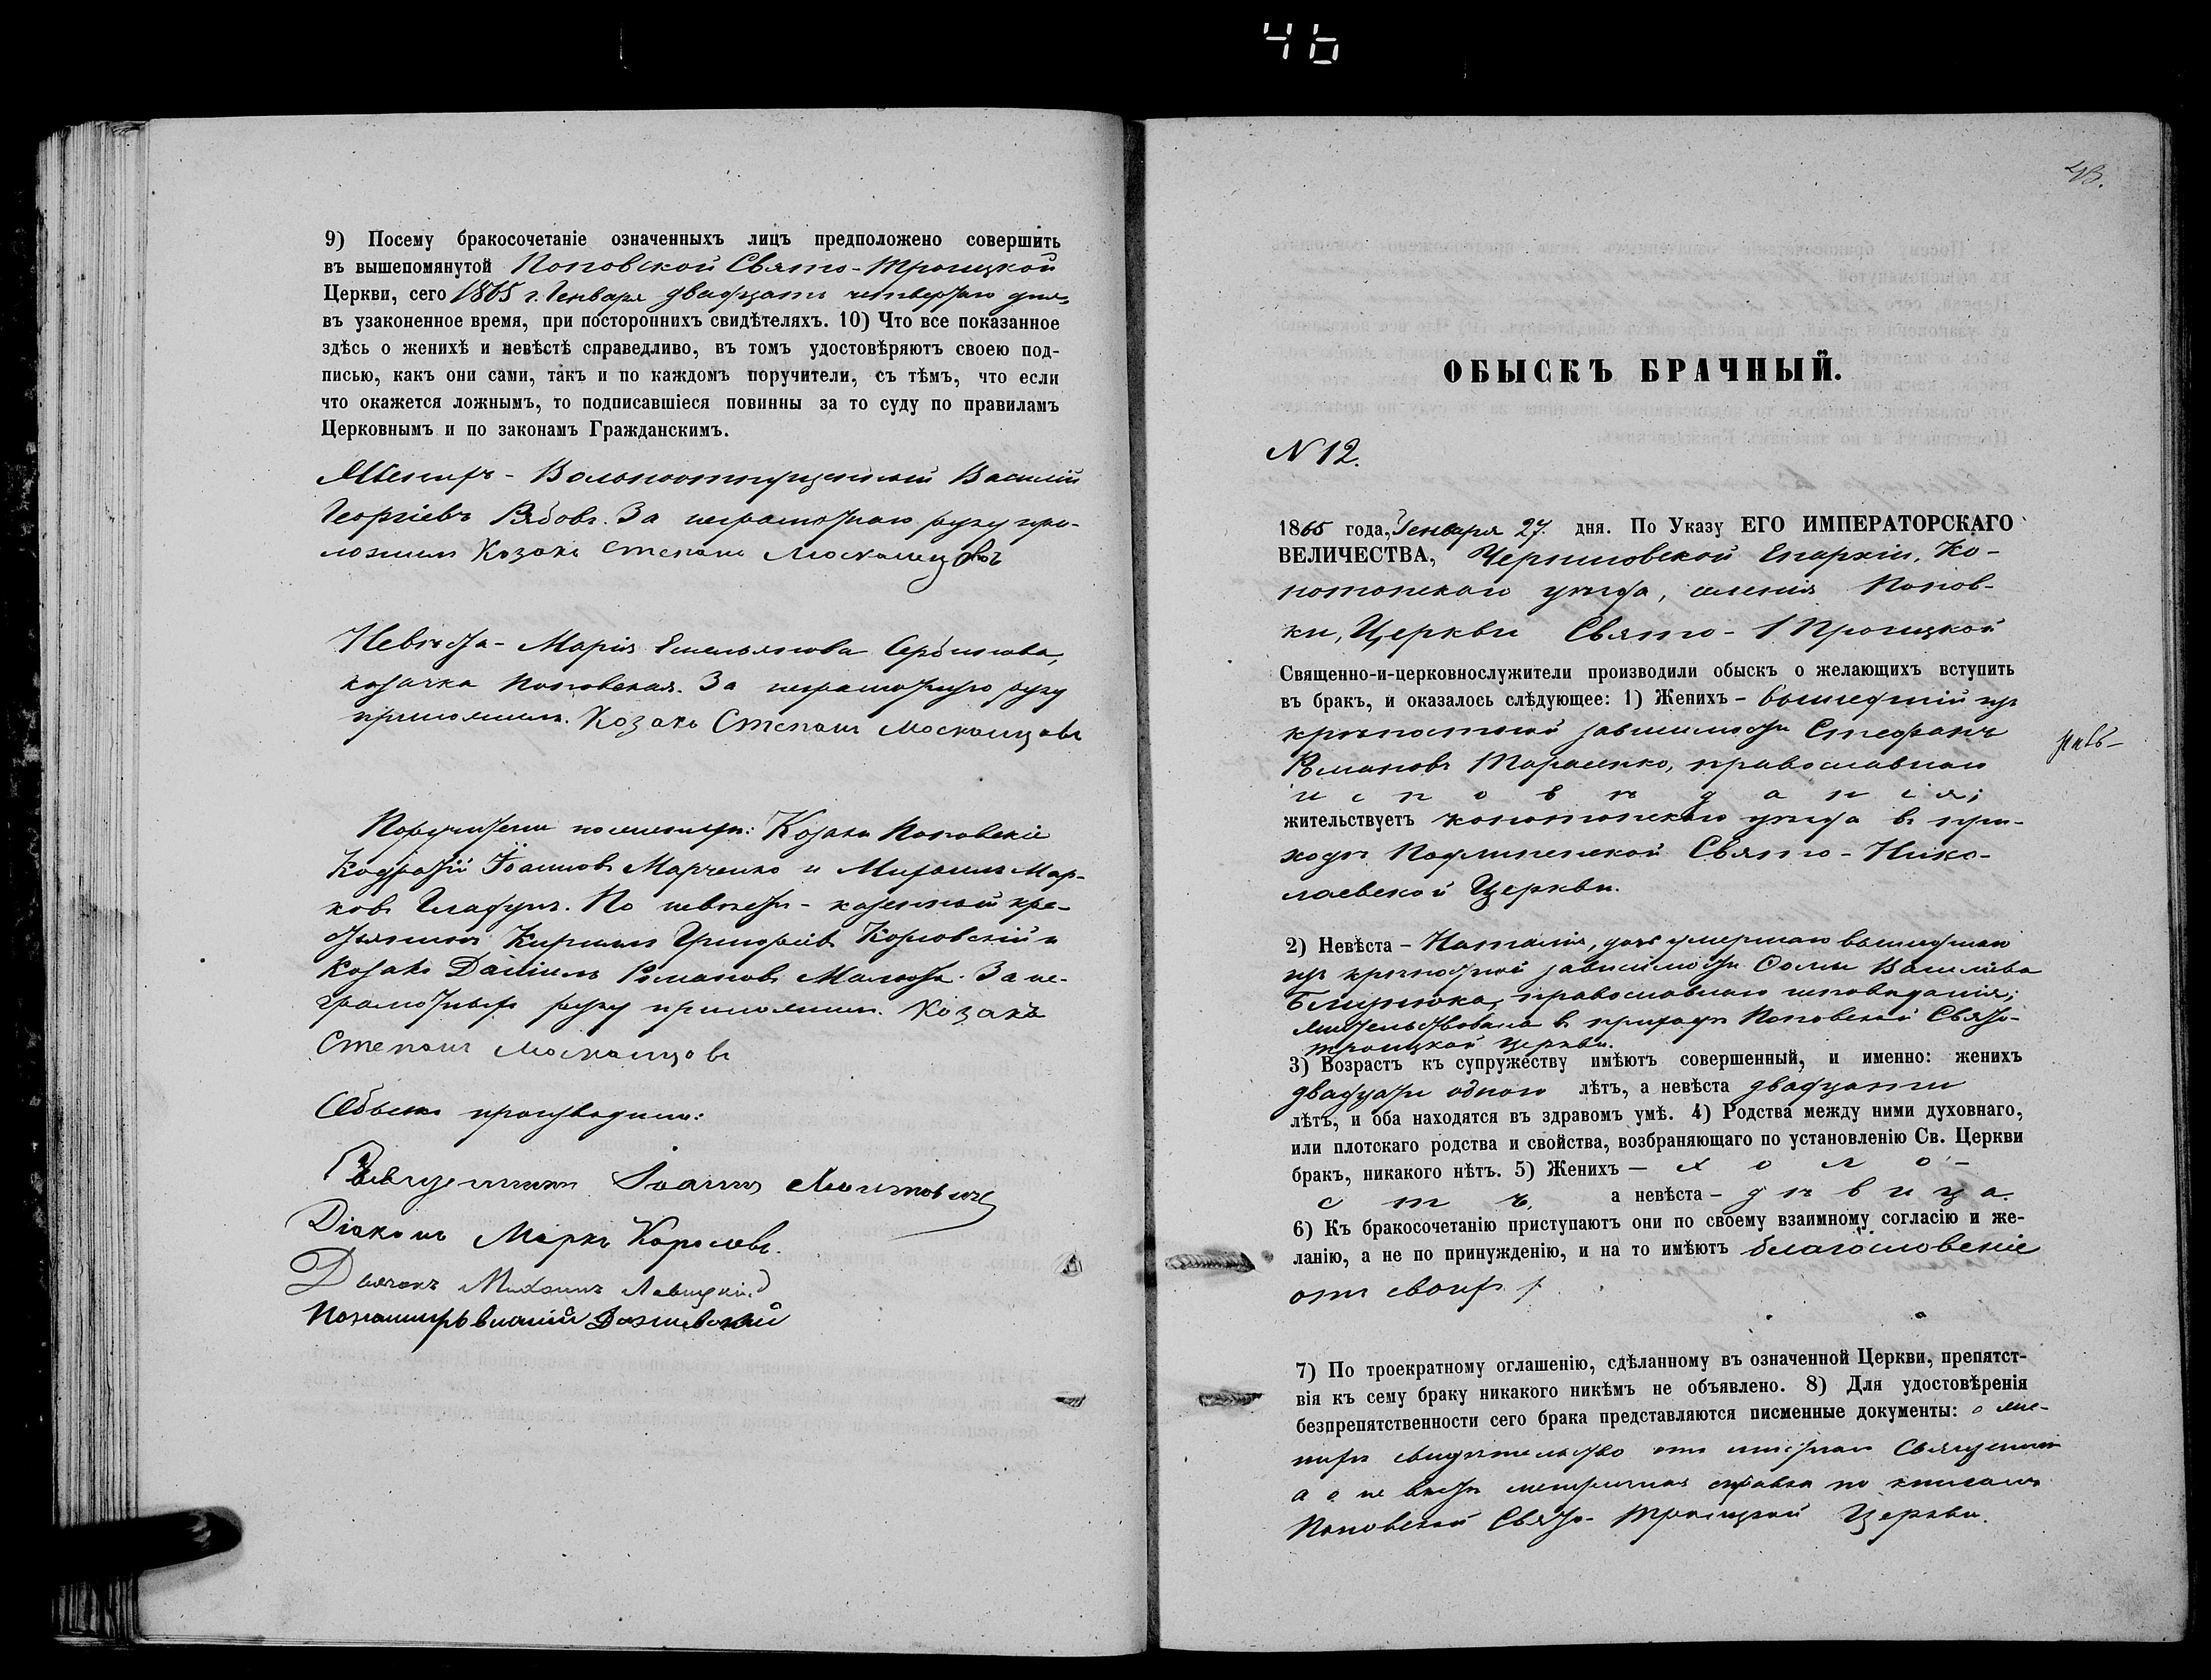 46
9) Посему бракосочетаніе означенныхъ лицъ предположено совершить
въ вышепомянутой Поповской Свято-Троицкой
Церкви, сего 1865 г. Генваря двадцать четвертаго дня,
въ узаконенное время, при постороннихъ свидѣтеляхъ. 10) Что все показанное
здѣсь о женихѣ и невѣстѣ справедливо, въ томъ удостовѣряютъ своею под-
писью, какъ они сами, такъ и по каждомъ поручители, съ тѣмъ, что если
что окажется ложнымъ, то подписавшіеся повинны за то суду по правиламъ
Церковнымъ и по законамъ Гражданскимъ.
Женихъ - Вольноотпущенный Василій
Георгіевъ Рябовъ. За неграмотнаго руку при-
ложилъ Козакъ Степанъ Москалцовъ
Невѣста - Марія Емельянова
козачка Поповская. За неграмотную руку
приложилъ. Козакъ Степанъ Москалцовъ
Поручители по женихѣ: Козаки Поповскіе
Іоанновъ Марченко и Михаилъ Мар-
ковъ Гладунъ. По невѣстѣ - казенный кре-
стьянинъ Кириллъ Григорьевъ Козловскій и
Козакъ Даніилъ Романовъ Малюта. За не-
грамотныхъ руку приложилъ. Козакъ
Степанъ Москалцовъ
Обыскъ производили:
Священникъ Іоаннъ
Діаконъ Маркъ Королевъ.
Дьячекъ Михаилъ Левицкій
Пономарь
43.
ОБЫСКЪ БРАЧНЫЙ.
N 12.
1865 года, Генваря 27. дня. По Указу ЕГО ИМПЕРАТОРСКАГО
ВЕЛИЧЕСТВА, Черниговской Епархіи, Ко-
нотопскаго уѣзда, селенія Попов-
ки, Церкви Свято-Троицкой
Священно-и-церковнослужители производили обыскъ о желающихъ вступить
въ бракъ, и оказалось слѣдующее: 1) Женихъ - вышедшій изъ
крѣпостной зависимости Стефанъ
Романовъ Тарасенко, православнаго
исповѣданія;
жительствуетъ конотопскаго уѣзда въ при-
ходѣ Подлипенской Свято-Нико-
лаевской Церкви.
2) Невѣста - Наталія, дочь умершаго вышедшаго
изъ крѣпостной зависимости Ѳомы Василіева
Близнюка, православнаго исповѣданія;
жительствовала въ приходѣ Поповской Свято-
троицкой церкви.
3) Возрастъ къ супружеству имѣютъ совершенный, и именно: женихъ
двадцати одного лѣтъ, а невѣста двадцати
лѣтъ, и оба находятся въ здравомъ умѣ. 4) Родства между ними духовнаго,
или плотскаго родства и свойства, возбраняющаго по установленію Св. Церкви
бракъ, никакого нѣтъ. 5) Женихъ - холо-
стъ, а невѣста - дѣвица.
6) Къ бракосочетанію приступаютъ они по своему взаимному согласію и же-
ланію, а не по принужденію, и на то имѣютъ благословеніе
отъ своихъ
7) По троекратному оглашенію, сдѣланному въ означенной Церкви, препятст-
вія къ сему браку никакого никѣмъ не объявлено. 8) Для удостовѣренія
безпрепятственности сего брака представляются писменные документы: о же-
нихѣ свидѣтельство отъ мѣстнаго Священника
а о невѣстѣ метричная справка по книгамъ
Поповской Свято-Троицкой Церкви.